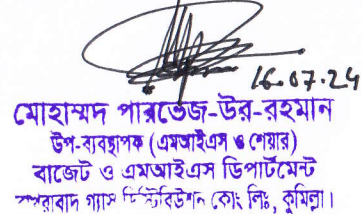 16.07.24
মোহাম্মদ পারভেজ-উর-রহমান
উপ-ব্যবস্থাপক (এমআইএস ও শেয়ার)
বাজেট ও এমআইএস ডিপার্টমেন্ট
গ্যাস ডিস্ট্রিবিউশন কোং লিঃ, কুমিল্লা।